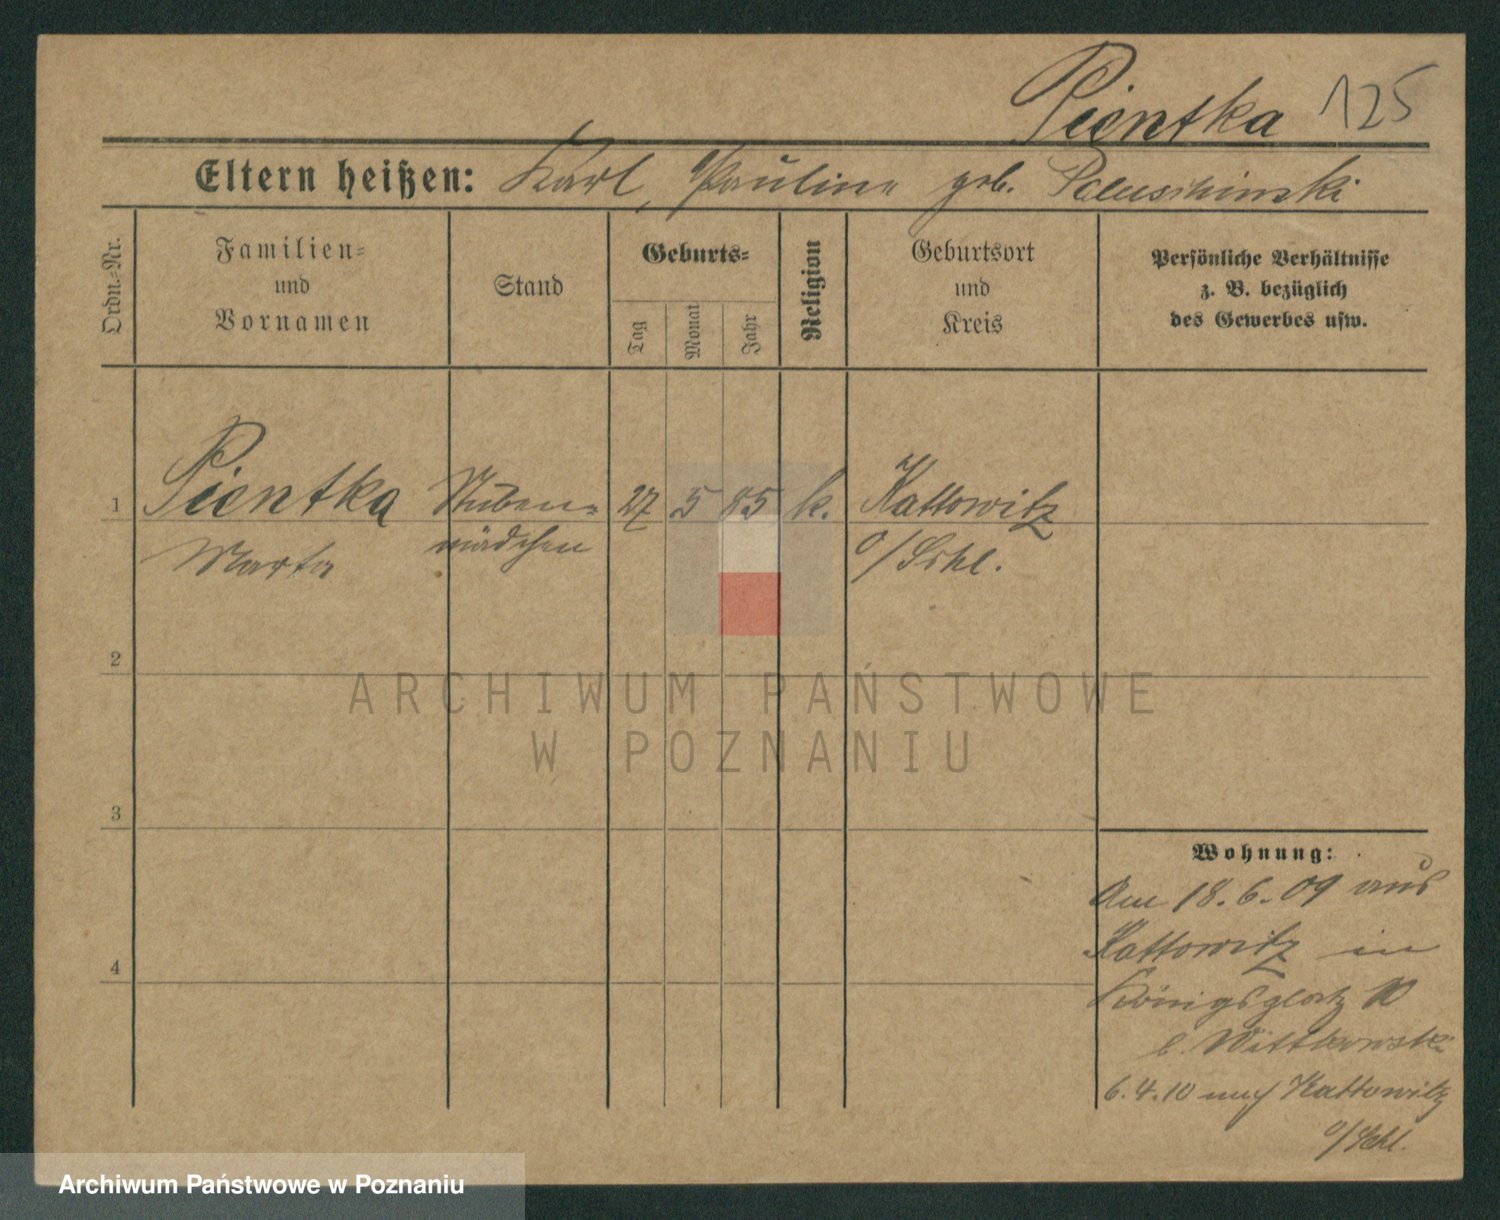 Pientka 125
Eltern heißen: Karl, Pauline geb.
Ordn.-Nr.
Familien-
und
Vornamen
Stand
Geburts-
Tag
Monat
Jahr
Religion
Geburtsort
und
Kreis
Persönliche Verhältnisse
z. B. bezüglich
des Gewerbes usw.
1 Pientka Stuben= 27 5 85 k. Kattowitz
Marta mädchen o/Schl.
2
ARCHIWUM PAŃSTWOWE
W POZNANIU
3
Wohnung:
Am 18.6.09 aus
Kattowitz in
Königsplatz 10
b. Wittkowski
4
6.4.10 nach Kattowitz
o/Schl.
Archiwum Państwowe w Poznaniu